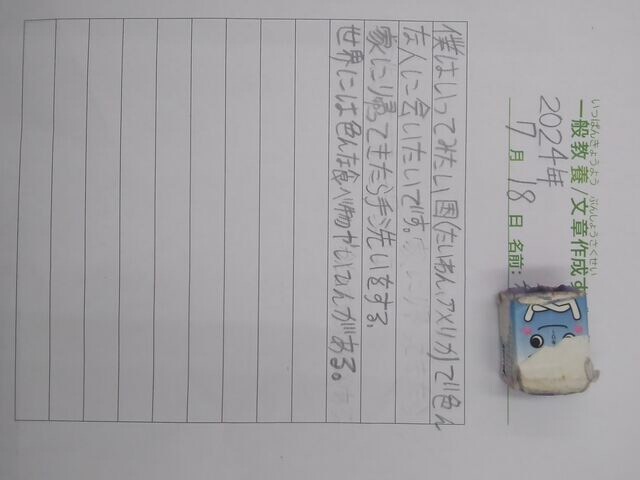 一般教養/文章作成
いっぱんきょうよう ぶんしょうさくせい
2024年
7月18日 名前:
僕はいってみたい国(たいわん、アメリカ)で色ん
友人に会いたいです。
家に帰ってきたら手洗いをする。
世界には色んな食べ物やいひんがある。